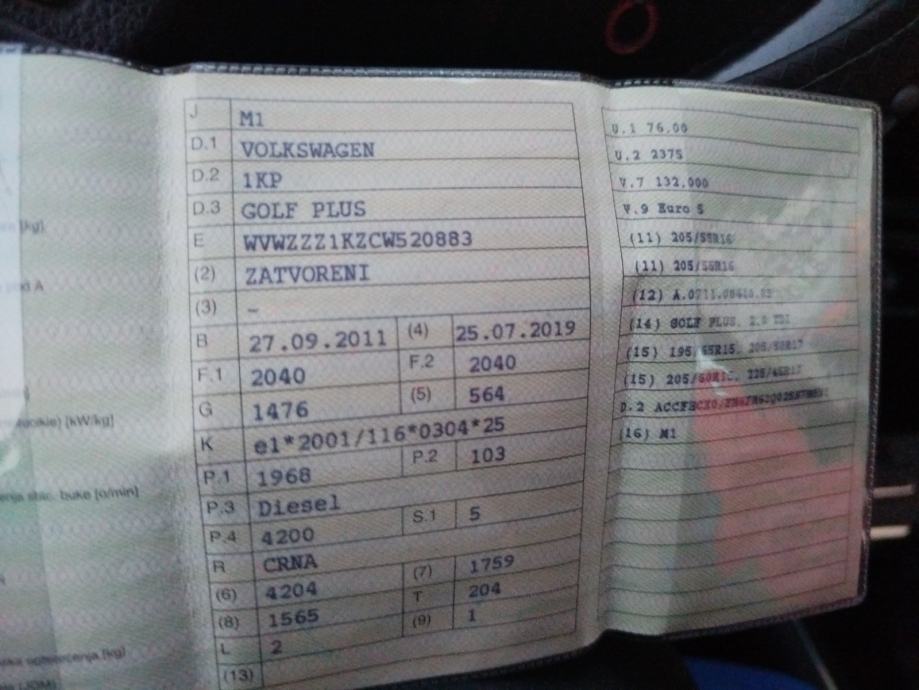 J M1
D.1 VOLKSWAGEN
D.2 1KP
D.3 GOLF PLUS
E WVWZZZ1KZCW520883
(2) ZATVORENI
(3) –
B 27.09.2011 (4) 25.07.2019
F.1 2040 F.2 2040
G 1476 (5) 564
K e1*2001/116*0304*25
P.1 1968 P.2 103
P.3 Diesel
P.4 4200 S.1 5
R CRNA
(6) 4204 (7) 1759
(8) 1565 T 204
L 2 (9) 1
(13)
U.1 76.00
U.2 2375
V.7 132.000
V.9 Euro 5
(11) 205/55R16
(11) 205/55R16
(12)
(14) GOLF PLUS, 2.0 TDI
(15) 195/65R15, 205/50R17
(15)
D.2
(16) M1
[kg]
A
[kW/kg]
buke [o/min]
[kg]